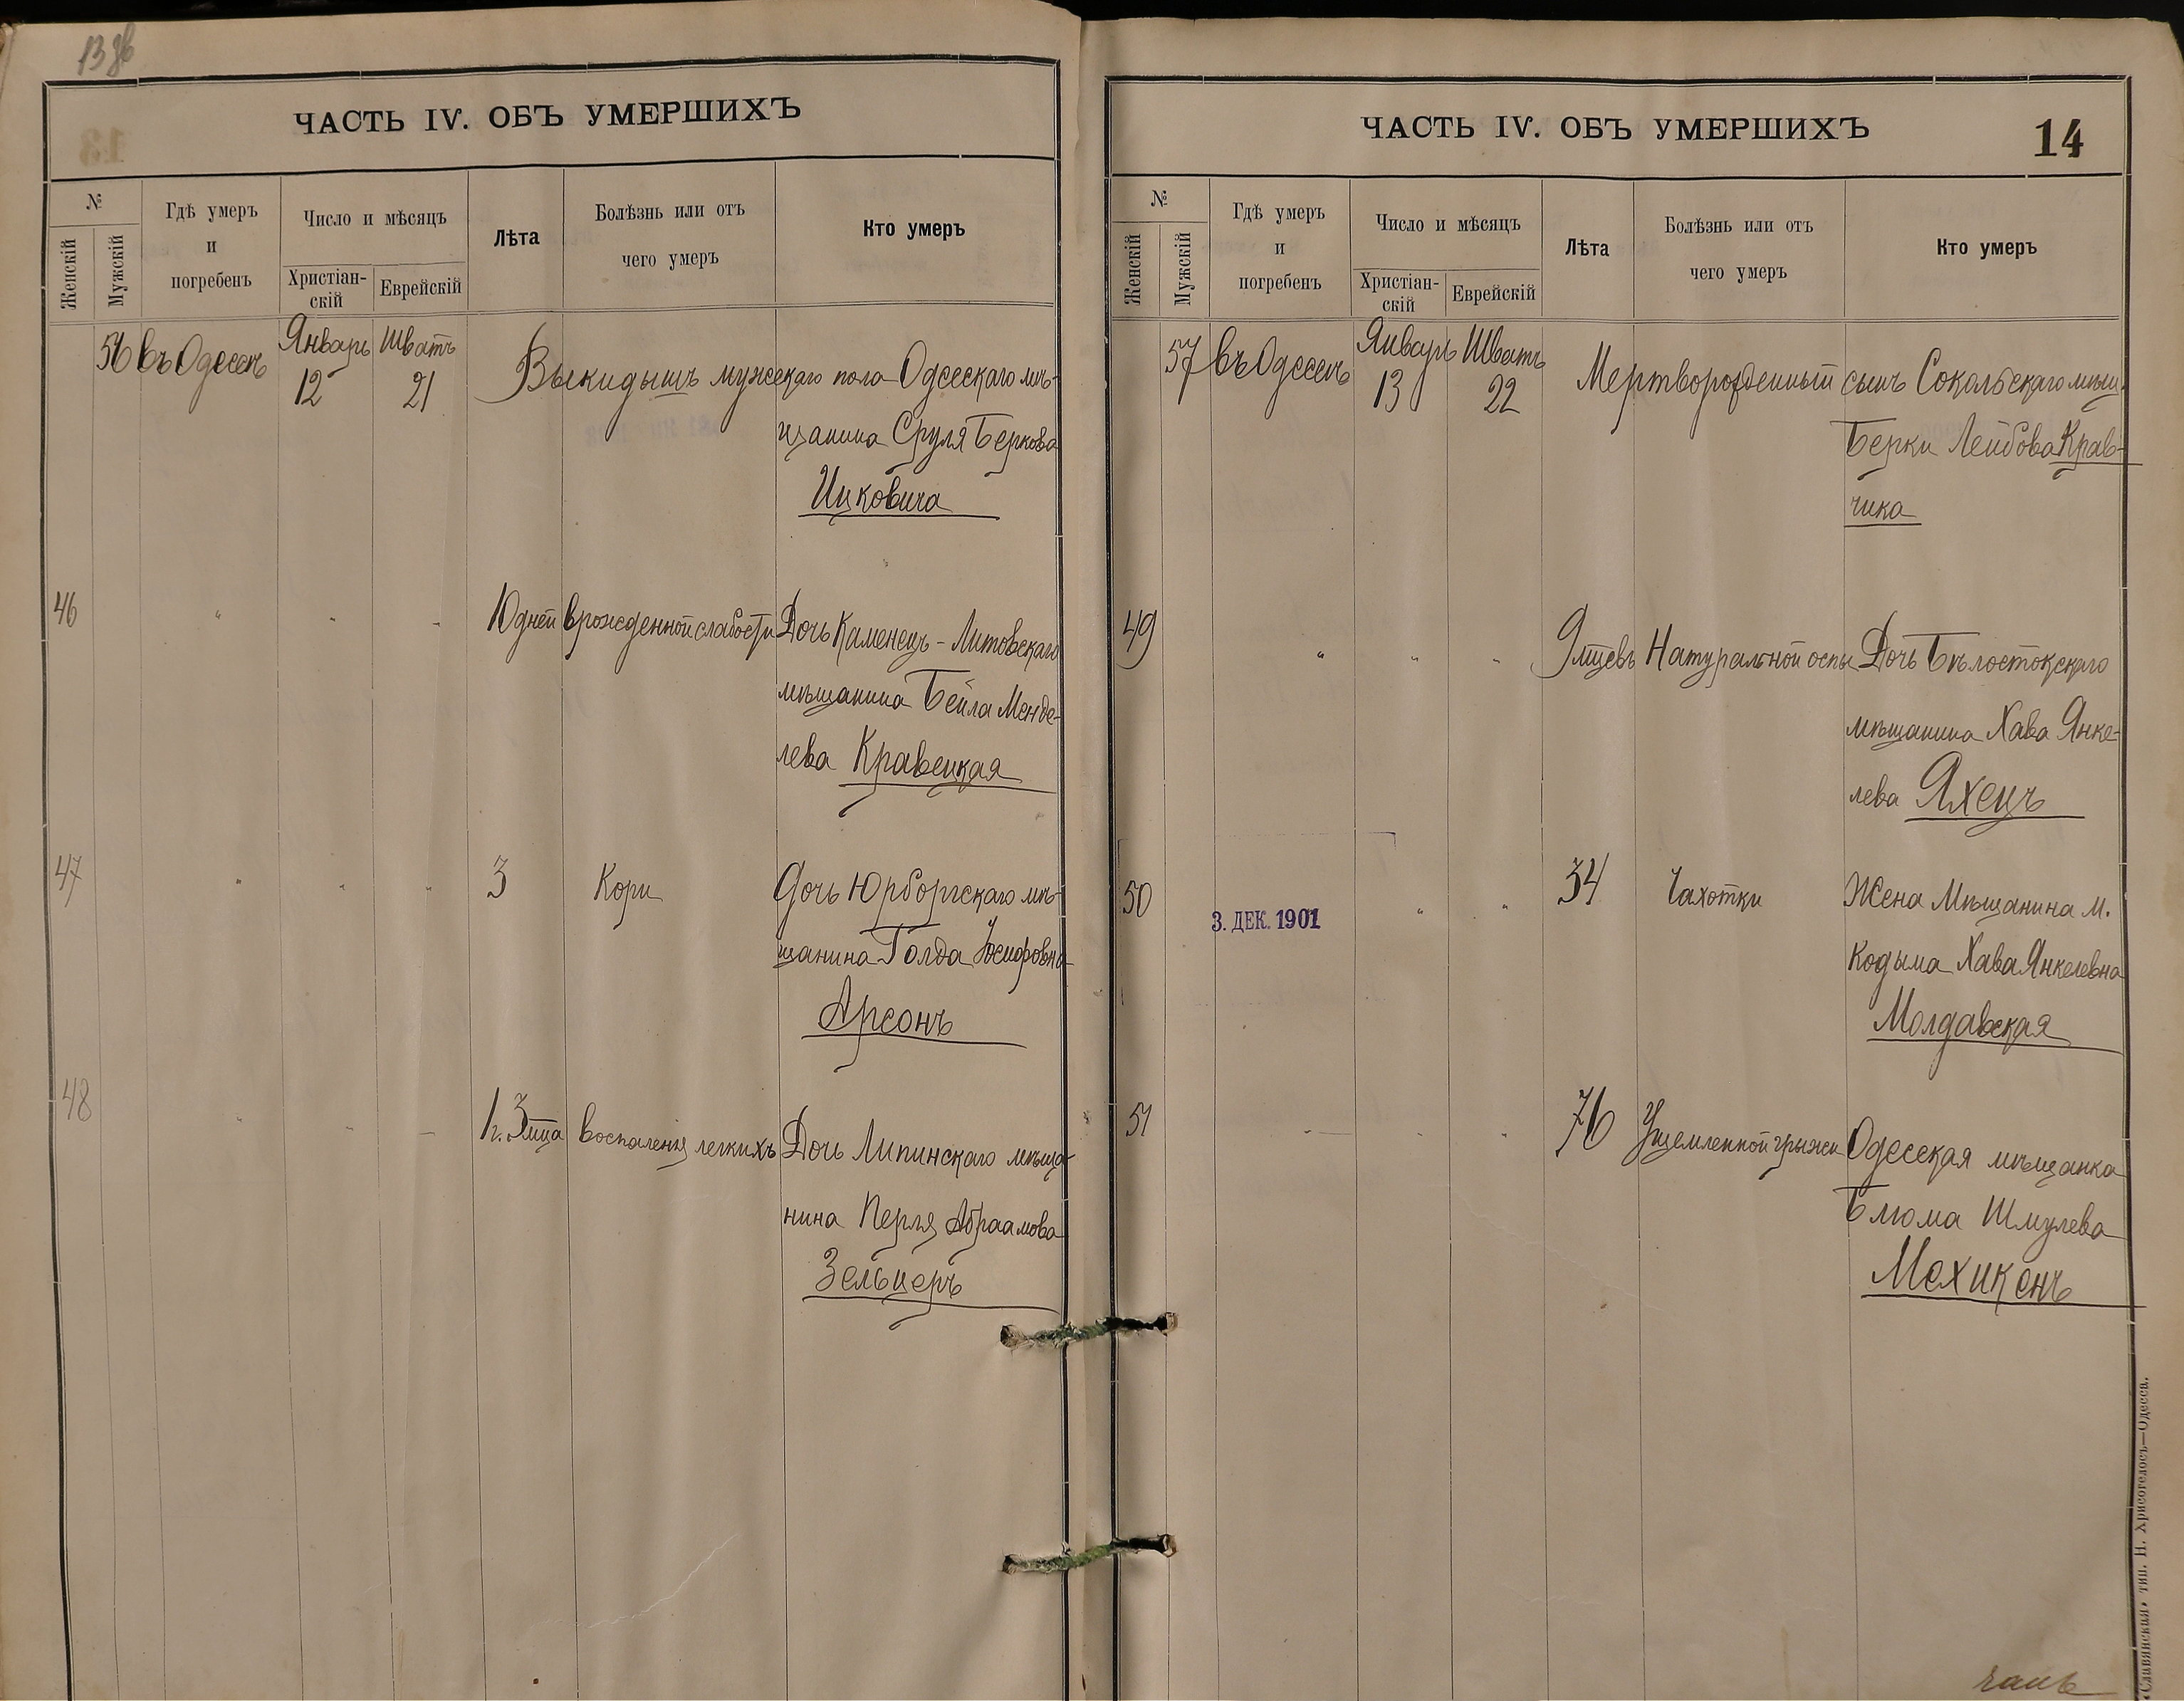 13 об
ЧАСТЬ IV. ОБЪ УМЕРШИХЪ
№
Женскій
Мужскій
Гдѣ умеръ
и
погребенъ
Число и мѣсяцъ
Христіан-
скій
Еврейскій
Лѣта
Болѣзнь или отъ
чего умеръ
Кто умеръ
56 въ Одессѣ Январь 12 Шватъ 21 Выкидышъ мужскаго пола Одесскаго мѣ-
щанина Сруля Беркова
Ицковича
46 " " " 10 дней врожденной слабости Дочь Каменецъ-Литовскаго
мѣщанина Бейла Менде-
лева Кравецкая
47 " " " 3 Кори Дочь Юрборгскаго мѣ-
щанина Голда Іосифовна
Арсонъ
48 " " " 1 г. 3 мца воспаленія легкихъ Дочь Липинскаго мѣща-
нина Перля Абраамова
Зельцеръ
ЧАСТЬ IV. ОБЪ УМЕРШИХЪ
14
№
Женскій
Мужскій
Гдѣ умеръ
и
погребенъ
Число и мѣсяцъ
Христіан-
скій
Еврейскій
Лѣта
Болѣзнь или отъ
чего умеръ
Кто умеръ
57 въ Одессѣ Январь 13 Шватъ 22 Мертворожденный сынъ Сокальскаго мѣщ.
Берки Лейбова Крав-
чика
49 " " " 9 мцевъ Натуральной оспы Дочь Бѣлостокскаго
мѣщанина Хава Янке-
лева Яхецъ
50 3. ДЕК. 1901 " " 34 Чахотки Жена Мѣщанина м.
Кодыма Хава Янкелевна
Молдавская
51 " " " 76 Ущемленной грыжи Одесская мѣщанка
Блюма Шмулева
Мехикенъ
«Славянская» тип. Н. Хрисогелосъ.—Одесса.